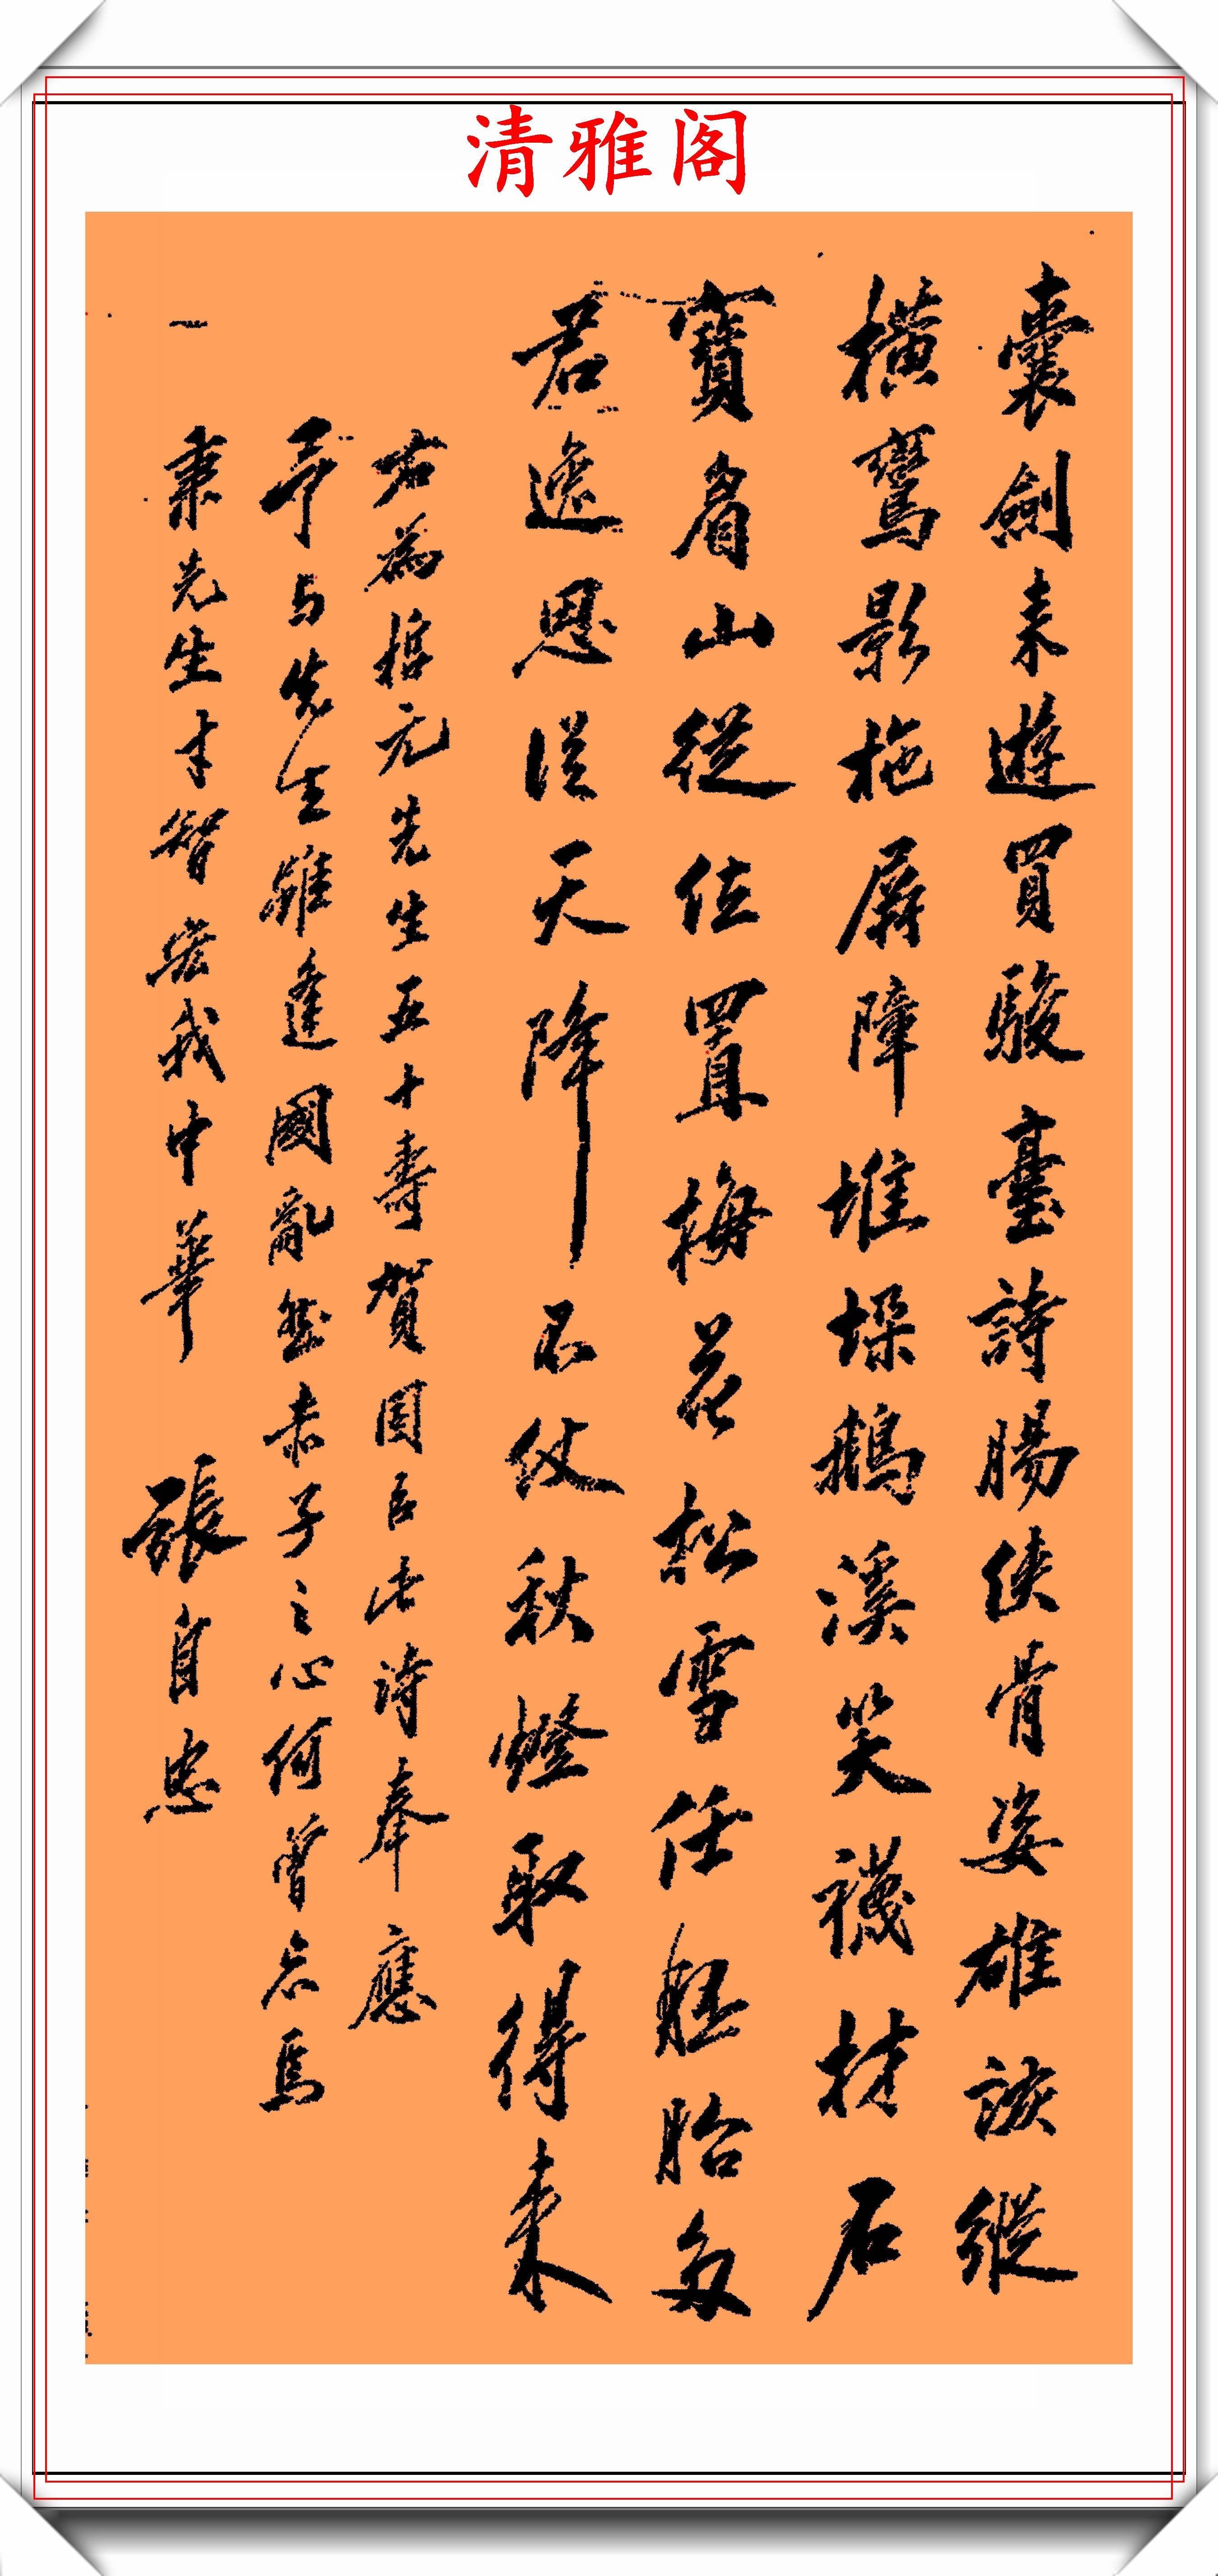 清雅阁
囊劍来遊買駿臺詩腸侠骨姿雄詼縱
橫鸞影拖屏障堆垛鵝溪笑襪材石
寶眉山從位置梅花松雪任胚胎多
君逸思從天降不仗秋燈取得来
右為哲元先生五十壽賀国臣法诗奉應
予与先生雖逢國亂然赤子之心何曾忘焉
秉先生才智宏我中華
張自忠